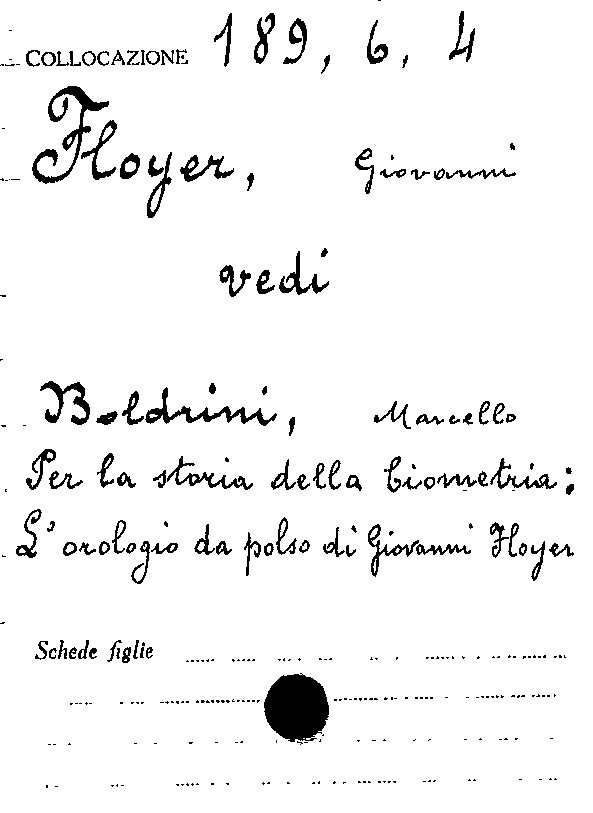 COLLOCAZIONE 189, 6, 4
Floyer, Giovanni
vedi
Boldrini, Marcello
Per la storia della biometria:
L'orologio da polso di Giovanni Floyer
Schede figlie